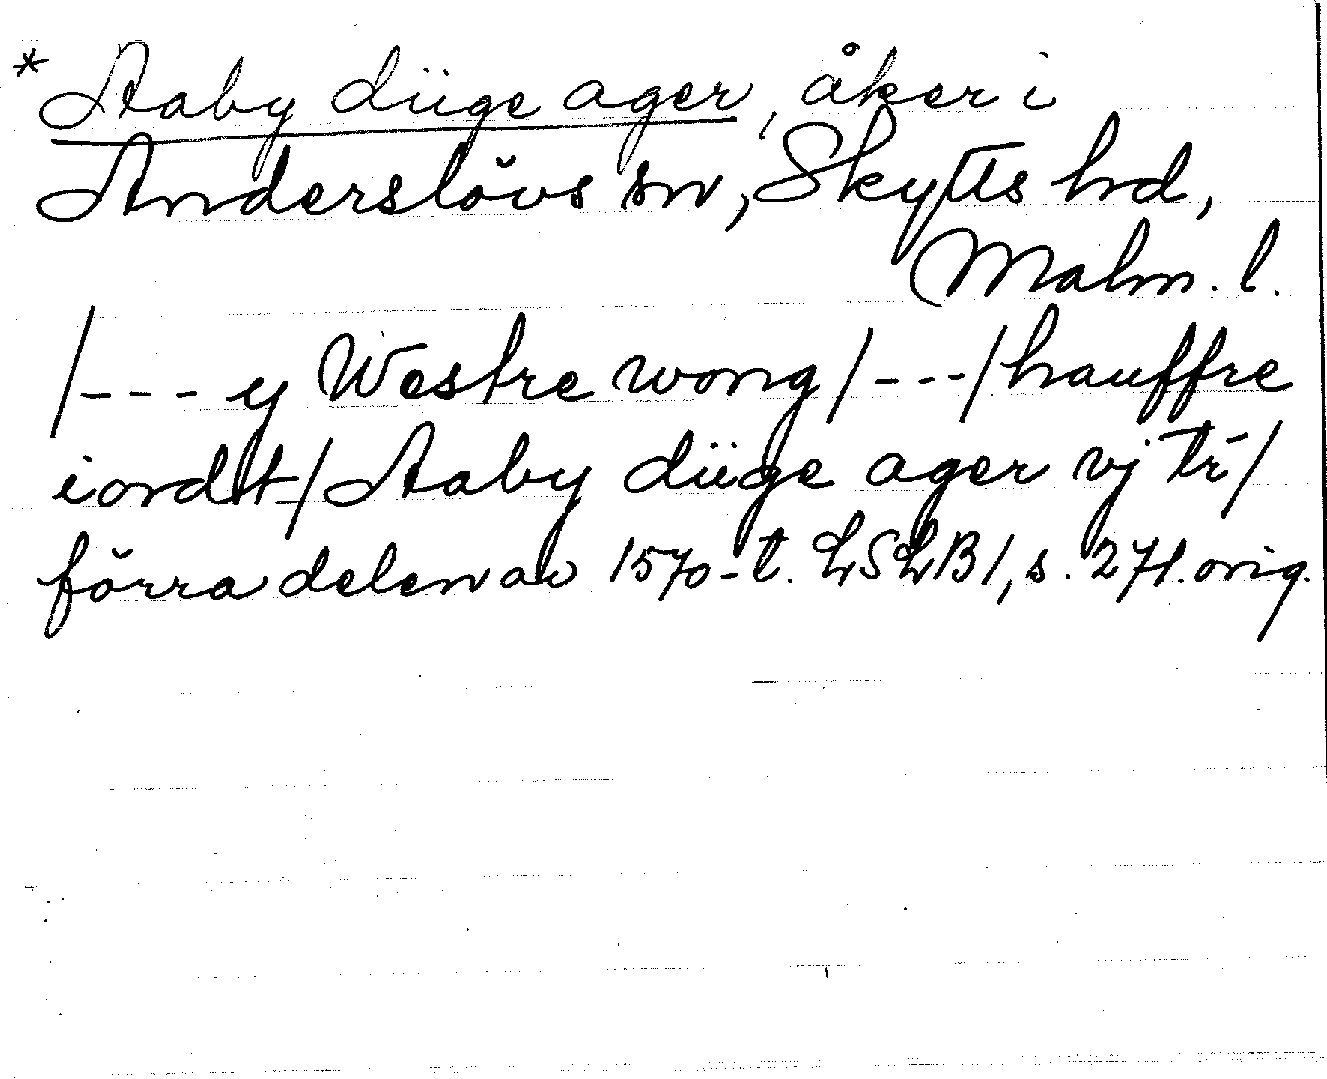 * Aaby düge ager, åker i
Anderslövs sn, Skytts hd,
Malm. l.
/--- y Westre wong/---/hauffre
iordt/Aaby düge ager vj tr̄/
förra delen av 1570-t. LSLB1, s. 271. orig.